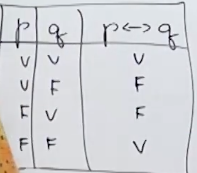 p q p<->q
V V V
V F F
F V F
F F V